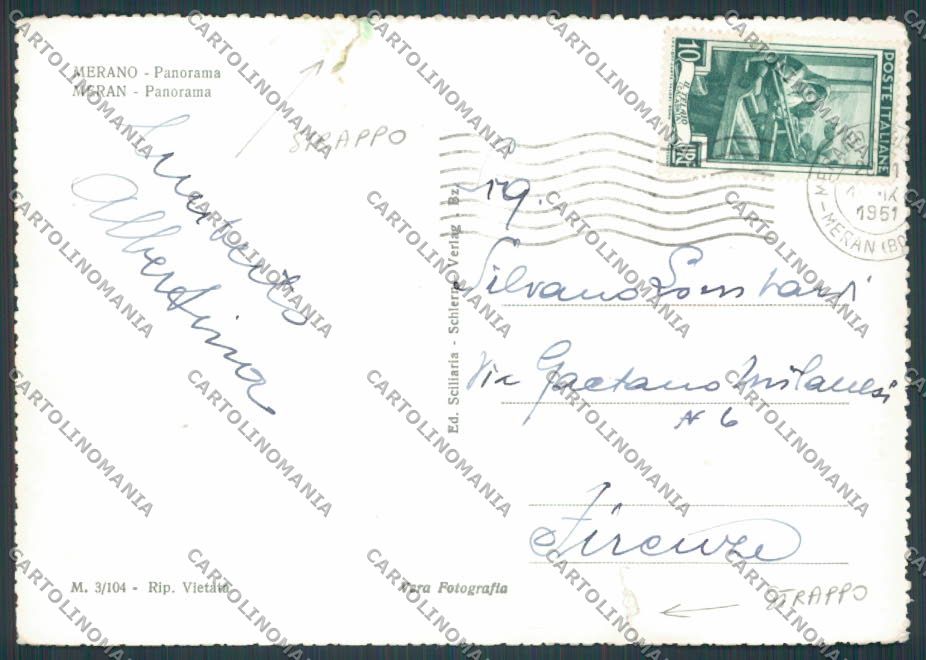 MERANO - Panorama
MERAN - Panorama
STRAPPO
Albertina
Ed. Sciliaria - Schlern Verlag - Bz.
10
POSTE ITALIANE
LIRE
1951
MERAN (BO
Sig.
Silvano Lombardi
Via Gaetano Milanesi
N 6
Firenze
M. 3/104 - Rip. Vietata
Vera Fotografia
STRAPPO
CARTOLINOMANIA